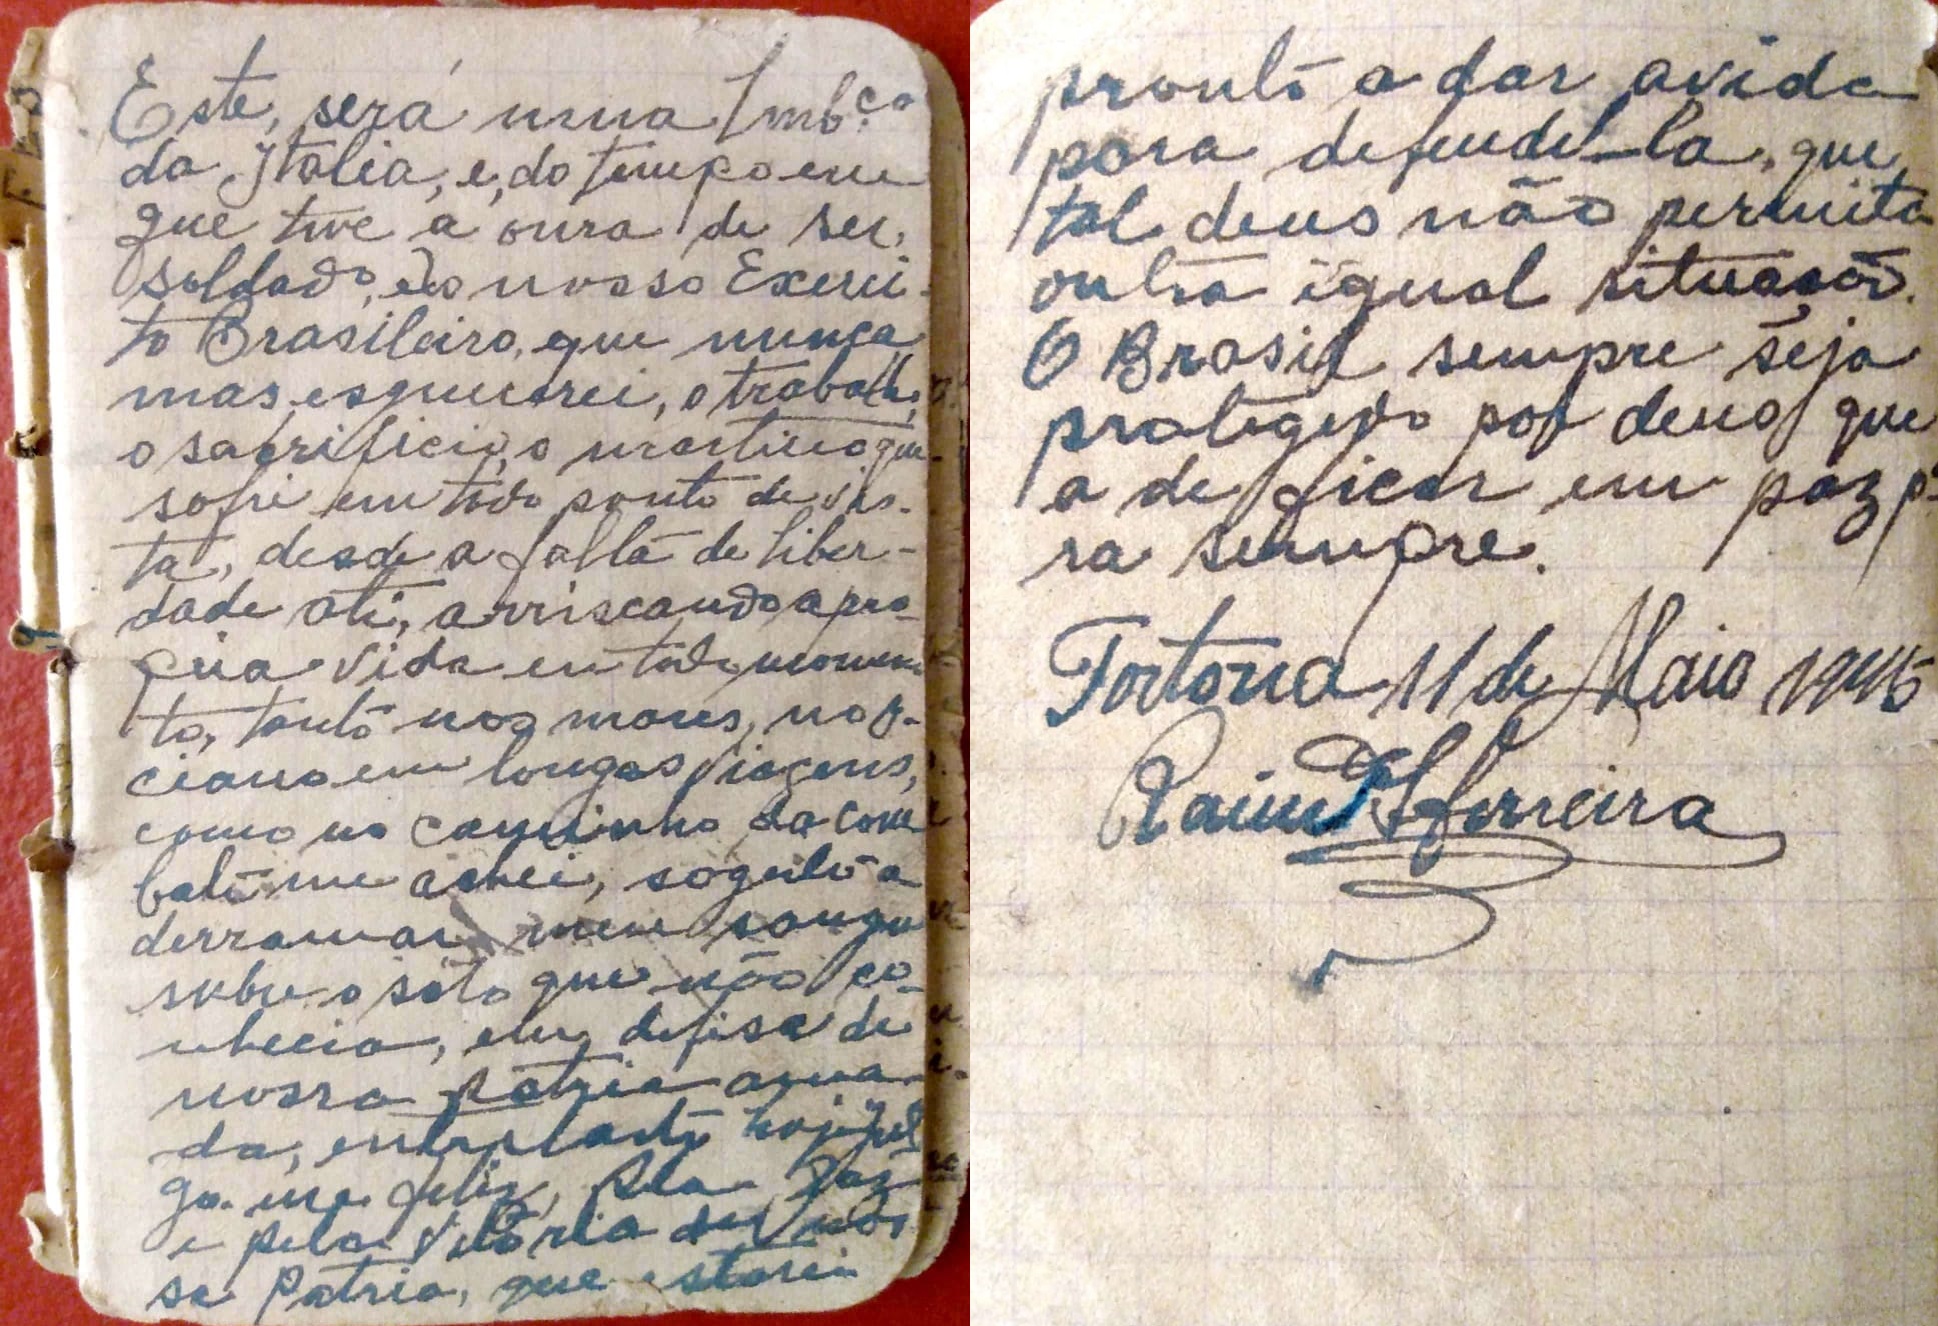 Este, será uma Lmbça
da Italia, e, do tempo em
que tive a onra de ser,
soldado, do nosso Exerci-
to Brasileiro, que nunca
mas esquecerei, o trabalho,
o sacrificio, o martirio que
sofri em todo ponto de vis-
ta, desde a falta de liber-
dade até, arriscando a pro-
pria vida em todo momen
to, tanto nos mares, no o-
ceano em longas viagens,
como no caminho da com
bate me achei, sogeito a
derramar meu sangue
sobre o solo que não co-
nhecia, em defisa de
nossa patria ama-
da, entretanto hoje jul
go-me feliz, pela Paz
e pela Vitoria de nos
sa Patria, que estarei
pronto a dar avida
para defendel-la, que
tal deus não permita
outra igual situação.
O Brasil sempre seja
protegido por deus que
a de ficar em paz pa
ra sempre.
Tortona 11 de Maio 1945
Raimd Ferreira